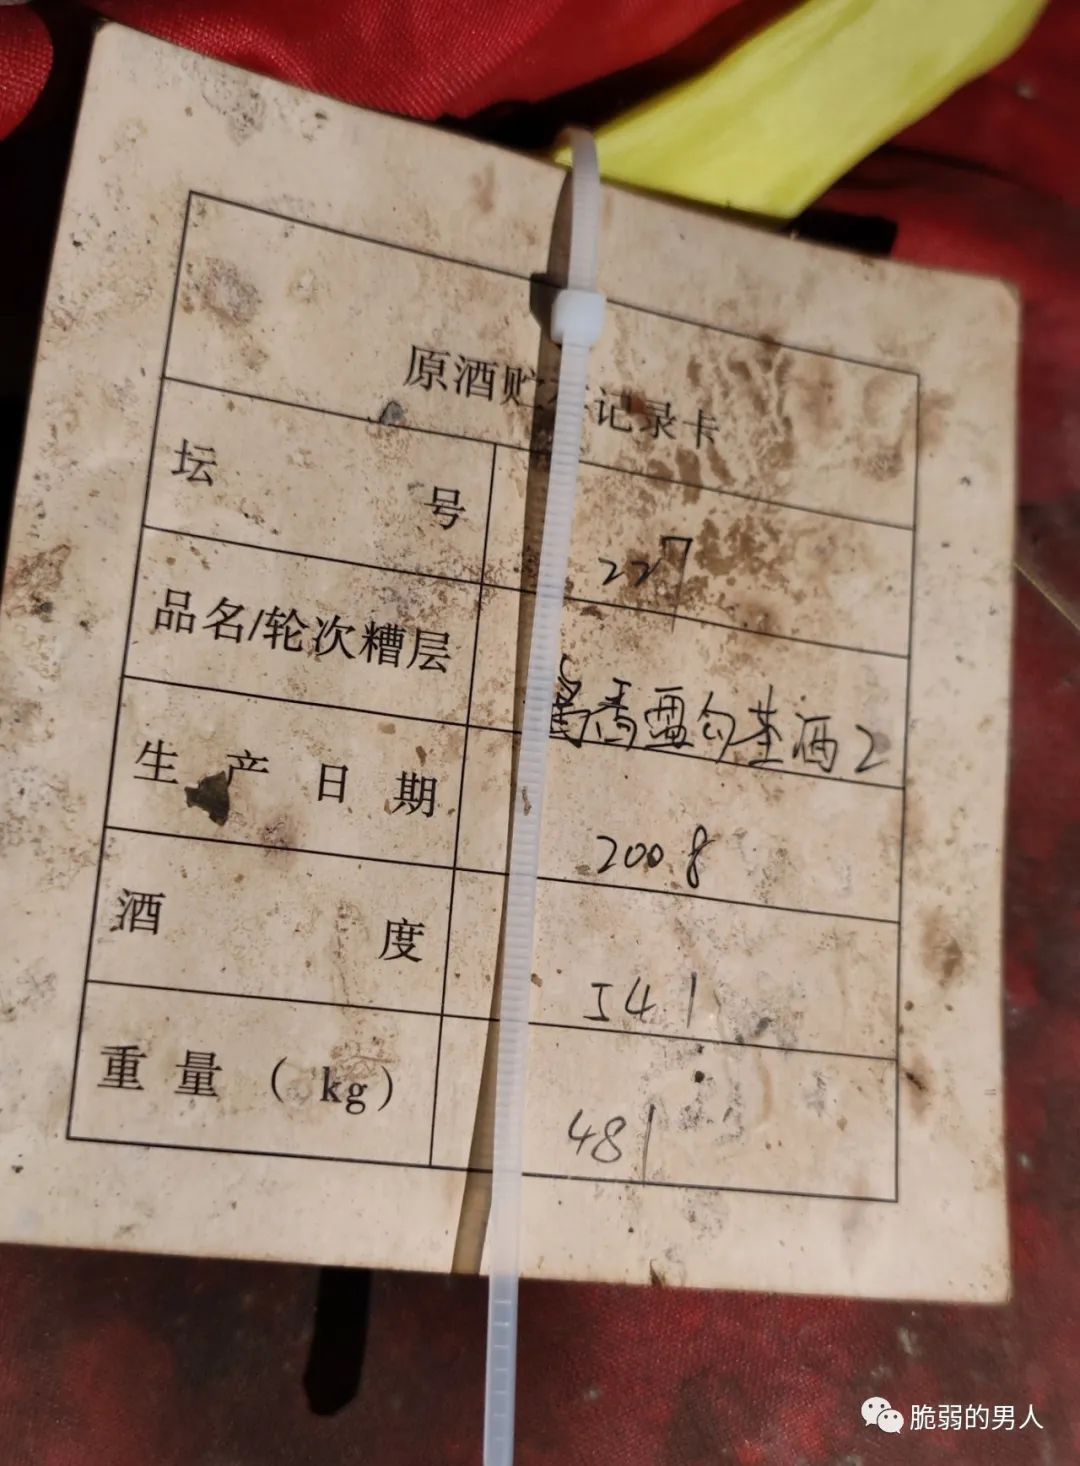 原酒贮存记录卡
坛号 227
品名/轮次糟层 酱香盘勾基酒2
生产日期 2008
酒度 541
重量(kg) 481
脆弱的男人